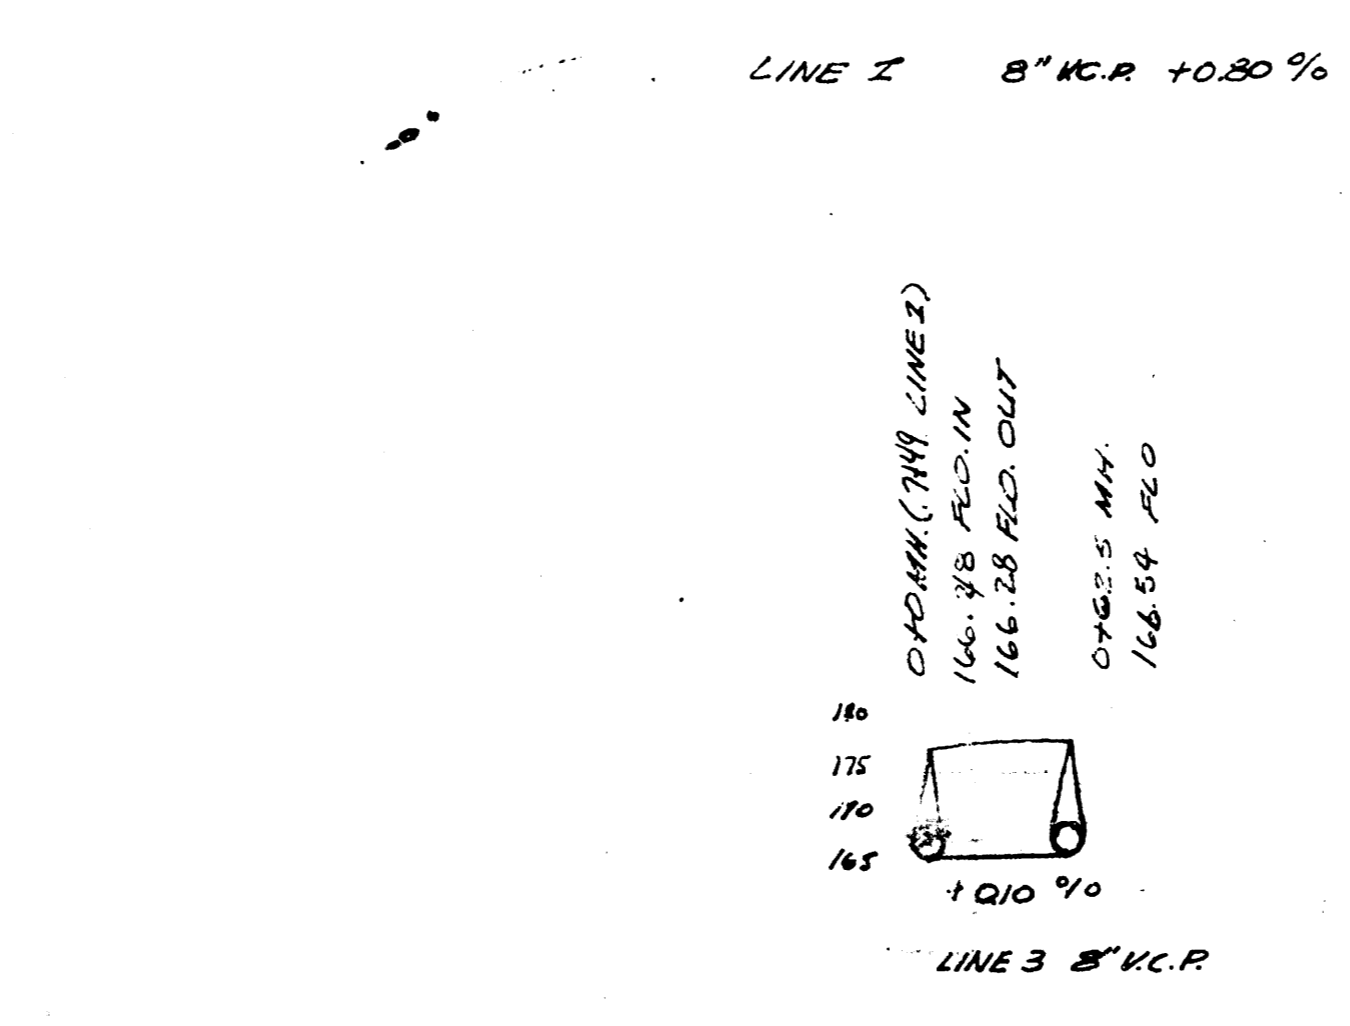 LINE I 8" V.C.P. +0.80 %
0+0 M.H. (.7+49 LINE I)
166.48 FLO. IN
166.28 FLO. OUT
0+62.5 MH.
166.54 FLO
180
175
170
165
+ 0.10 %
LINE 3 8" V.C.P.